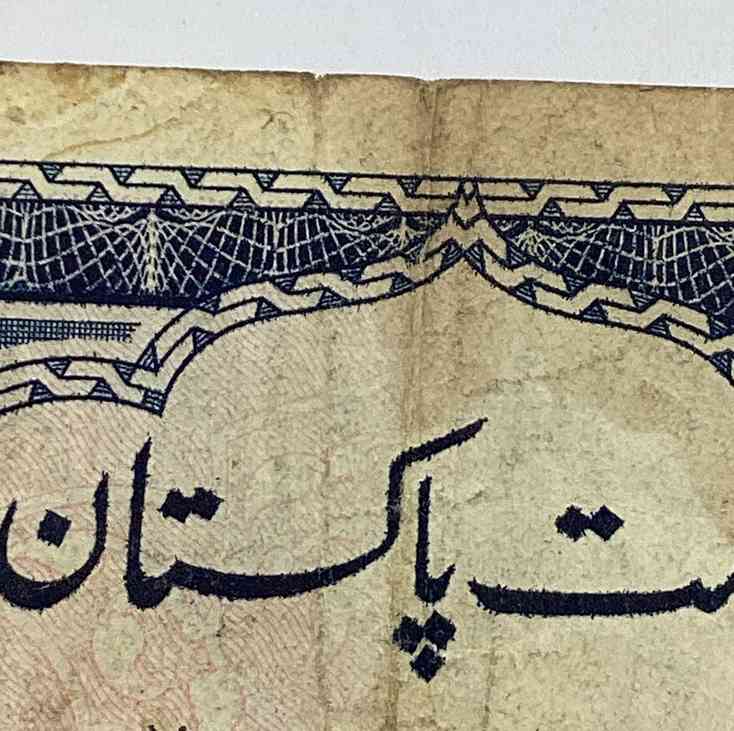 پاکستان